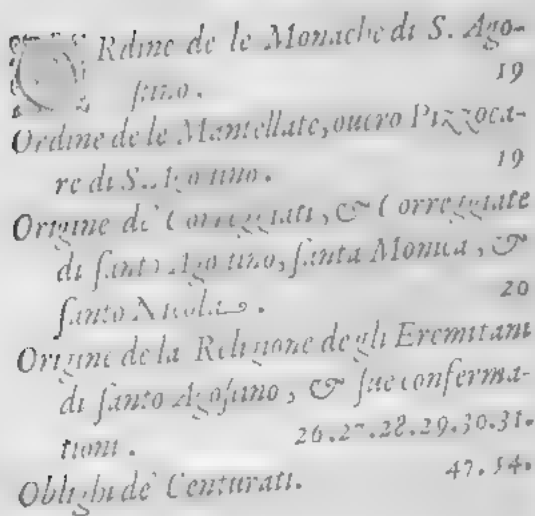 ORdine de le Monache di S. Ago-
stino. 19
Ordine de le Mantellate, ouero Pizzoca-
re di S. Agostino. 19
Origine de' Correggiati, & Correggiate
di santo Agostino, santa Monica, &
santo Nicola. 20
Origine de la Religione degli Eremitani
di santo Agostino, & sue conferma-
tioni. 26.27.28.29.30.31.
Oblighi de' Centurati. 47.54.